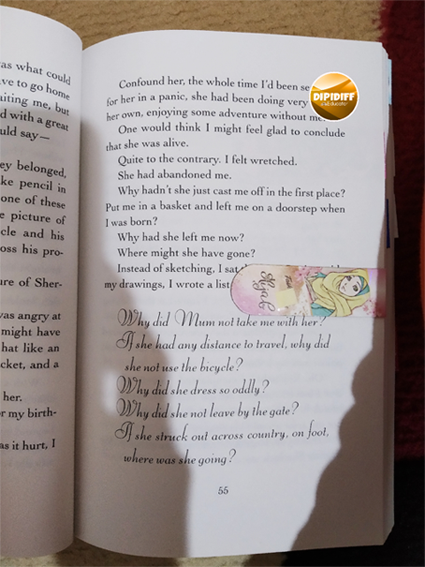 was what could
ve to go home
aiting me, but
ed with a great
uld say—
ey belonged,
ke pencil in
one of these
e picture of
cle and his
oss his pro-
ure of Sher-
was angry at
might have
hat like an
cket, and a
her.
or my birth-
as it hurt, I
Confound her, the whole time I'd been
for her in a panic, she had been doing very
her own, enjoying some adventure without me.
One would think I might feel glad to conclude
that she was alive.
Quite to the contrary. I felt wretched.
She had abandoned me.
Why hadn't she just cast me off in the first place?
Put me in a basket and left me on a doorstep when
I was born?
Why had she left me now?
Where might she have gone?
Instead of sketching, I sat
my drawings, I wrote a list
Why did Mum not take me with her?
If she had any distance to travel, why did
she not use the bicycle?
Why did she dress so oddly?
Why did she not leave by the gate?
If she struck out across country, on foot,
where was she going?
55
DIPIDIFF
Hijab